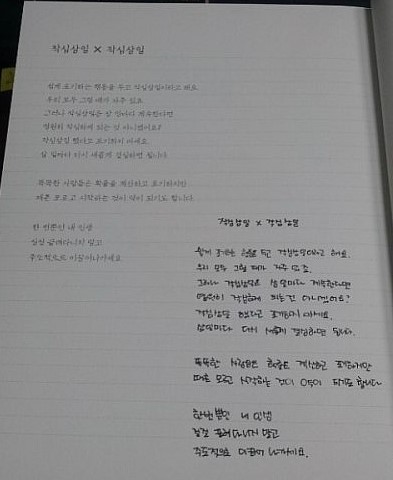 작심삼일 × 작심삼일
쉽게 포기하는 행동을 두고 작심삼일이라고 해요.
우리 모두 그럴 때가 자주 있죠.
그러나 작심삼일을 삼 일마다 계속한다면
영원히 작심하게 되는 것 아니겠어요?
작심삼일 했다고 포기하지 마세요.
삼 일마다 다시 새롭게 결심하면 됩니다.
똑똑한 사람들은 확률을 계산하고 포기하지만
때론 모르고 시작하는 것이 약이 되기도 합니다.
한 번뿐인 내 인생
질질 끌려다니지 말고
주도적으로 이끌어나가세요.
작심삼일 × 작심삼일
쉽게 포기하는 행동을 두고 작심삼일이라고 해요.
우리 모두 그럴 때가 자주 있죠.
그러나 작심삼일을 삼 일마다 계속한다면
영원히 작심하게 되는 것 아니겠어요?
작심삼일 했다고 포기하지 마세요.
삼 일마다 다시 새롭게 결심하면 됩니다.
똑똑한 사람들은 확률을 계산하고 포기하지만
때론 모르고 시작하는 것이 약이 되기도 합니다
한 번뿐인 내 인생
질질 끌려다니지 말고
주도적으로 이끌어 나가세요.